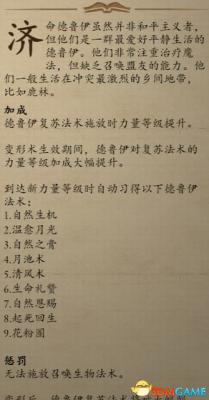 济命德鲁伊虽然并非和平主义者，
但他们是一群爱好平静生活的
德鲁伊。他们非常注重治疗魔
法，但缺乏召唤盟友的能力。他
们一般生活在冲突最激烈的乡间地带，
比如鹿林。
加成
德鲁伊复苏法术施放时力量等级提升。
变形术生效期间，德鲁伊对复苏法术的
力量等级加成大幅提升。
到达新力量等级时自动习得以下德鲁伊
法术：
1.自然生机
2.温愈月光
3.自然之膏
4.月池术
5.清风术
6.生命礼赞
7.自然恩赐
8.起死回生
9.花粉圈
惩罚
无法施放召唤生物法术。
GAME